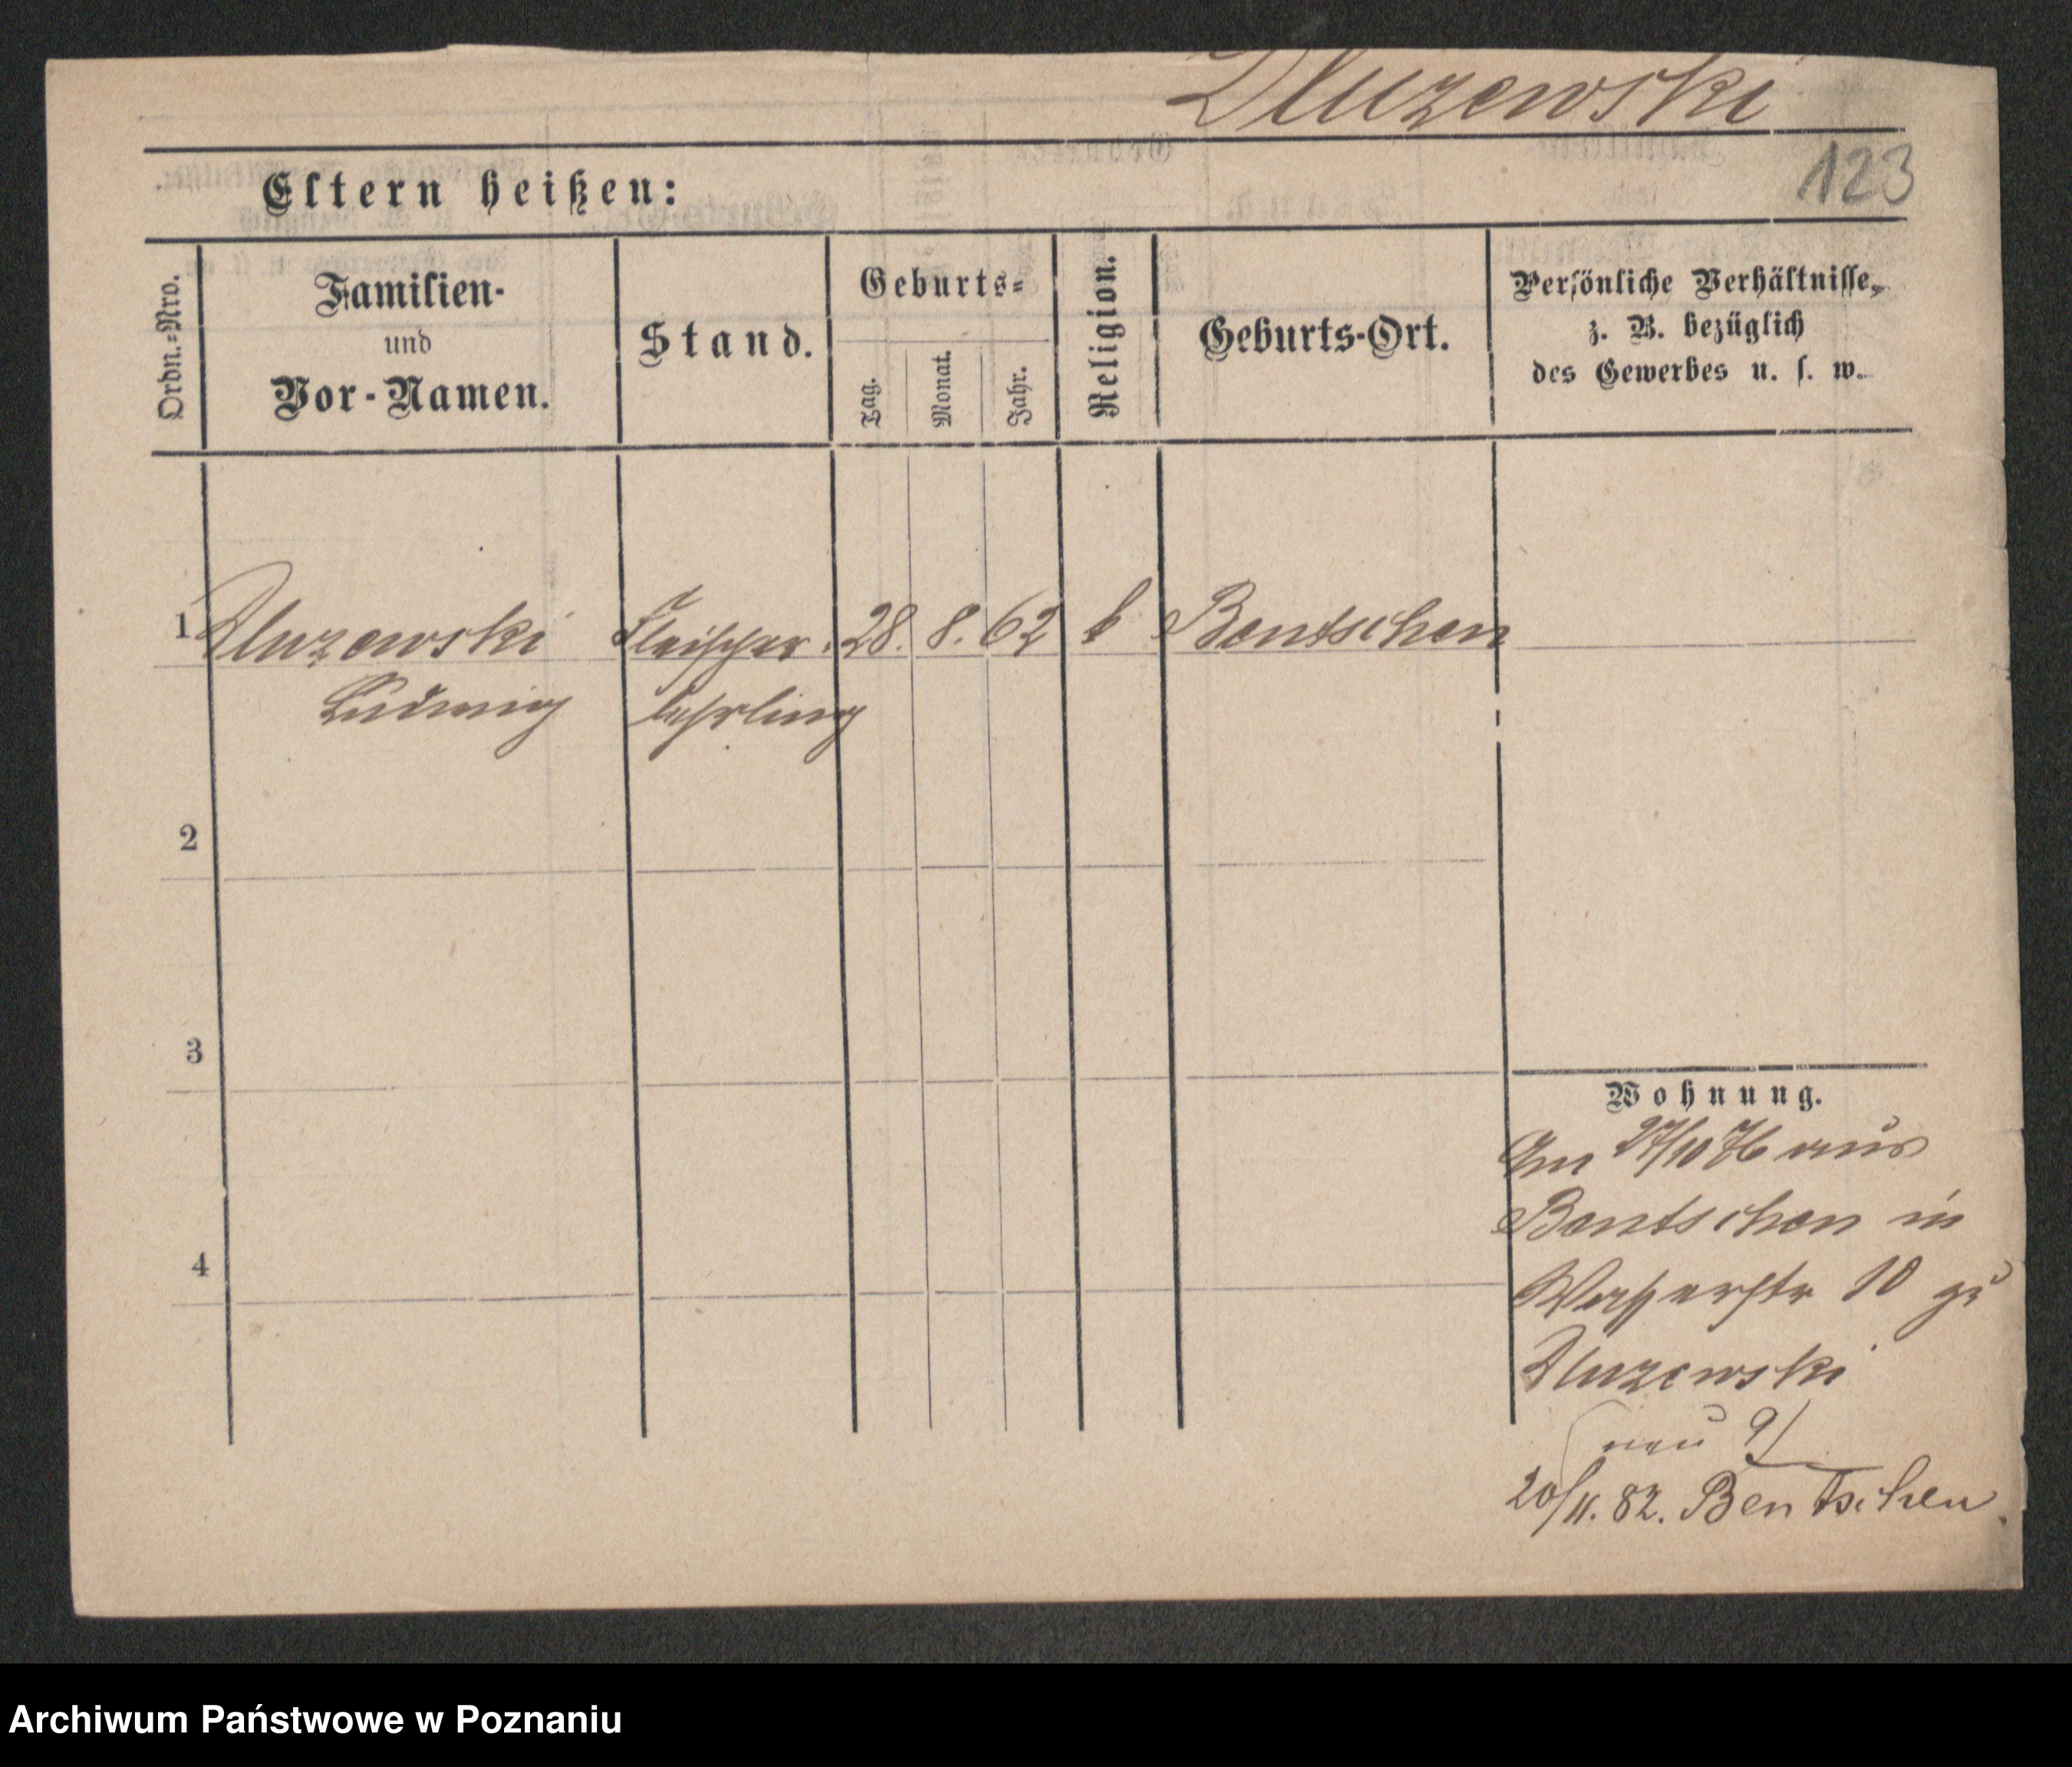 Dluzewski
123
Eltern heißen:
Ordn.=Nro.
Familien-
und
Vor-Namen.
Stand.
Geburts=
Tag.
Monat.
Jahr.
Religion.
Geburts-Ort.
Persönliche Verhältnisse,
z. B. bezüglich
des Gewerbes u. s. w.
1 Dluzewski Fleischer 28. 8. 62 k Bentschen
Ludwig lehrling
2
3
4
Wohnung.
Am 27/10 76 aus
Bentschen in
10 zu
Dluzewski
neu 9/
20/11. 82. Bentschen.
Archiwum Państwowe w Poznaniu